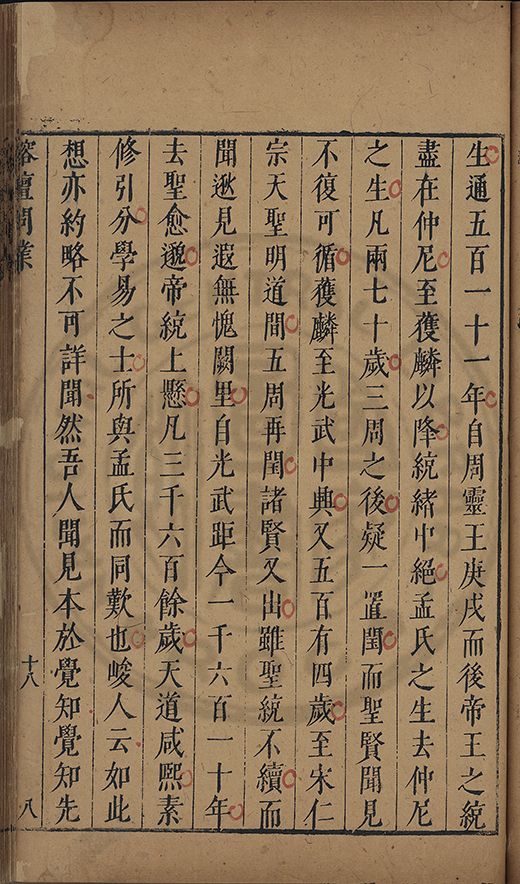 生通五百一十一年自周靈王庚戌而後帝王之統
盡在仲尼至獲麟以降統緒中絕孟氏之生去仲尼
之生凡兩七十歲三周之後疑一置閏而聖賢聞見
不復可循獲麟至光武中興又五百有四歲至宋仁
宗天聖明道間五周再閏諸賢又出雖聖統不續而
聞逖見遐無愧闕里自光武距今一千六百一十年
去聖愈邈帝統上懸凡三千六百餘歲天道咸熙素
修引分學易之士所與孟氏而同歎也峻人云如此
想亦約略不可詳聞然吾人聞見本於覺知覺知先
榕壇問業
十八
八